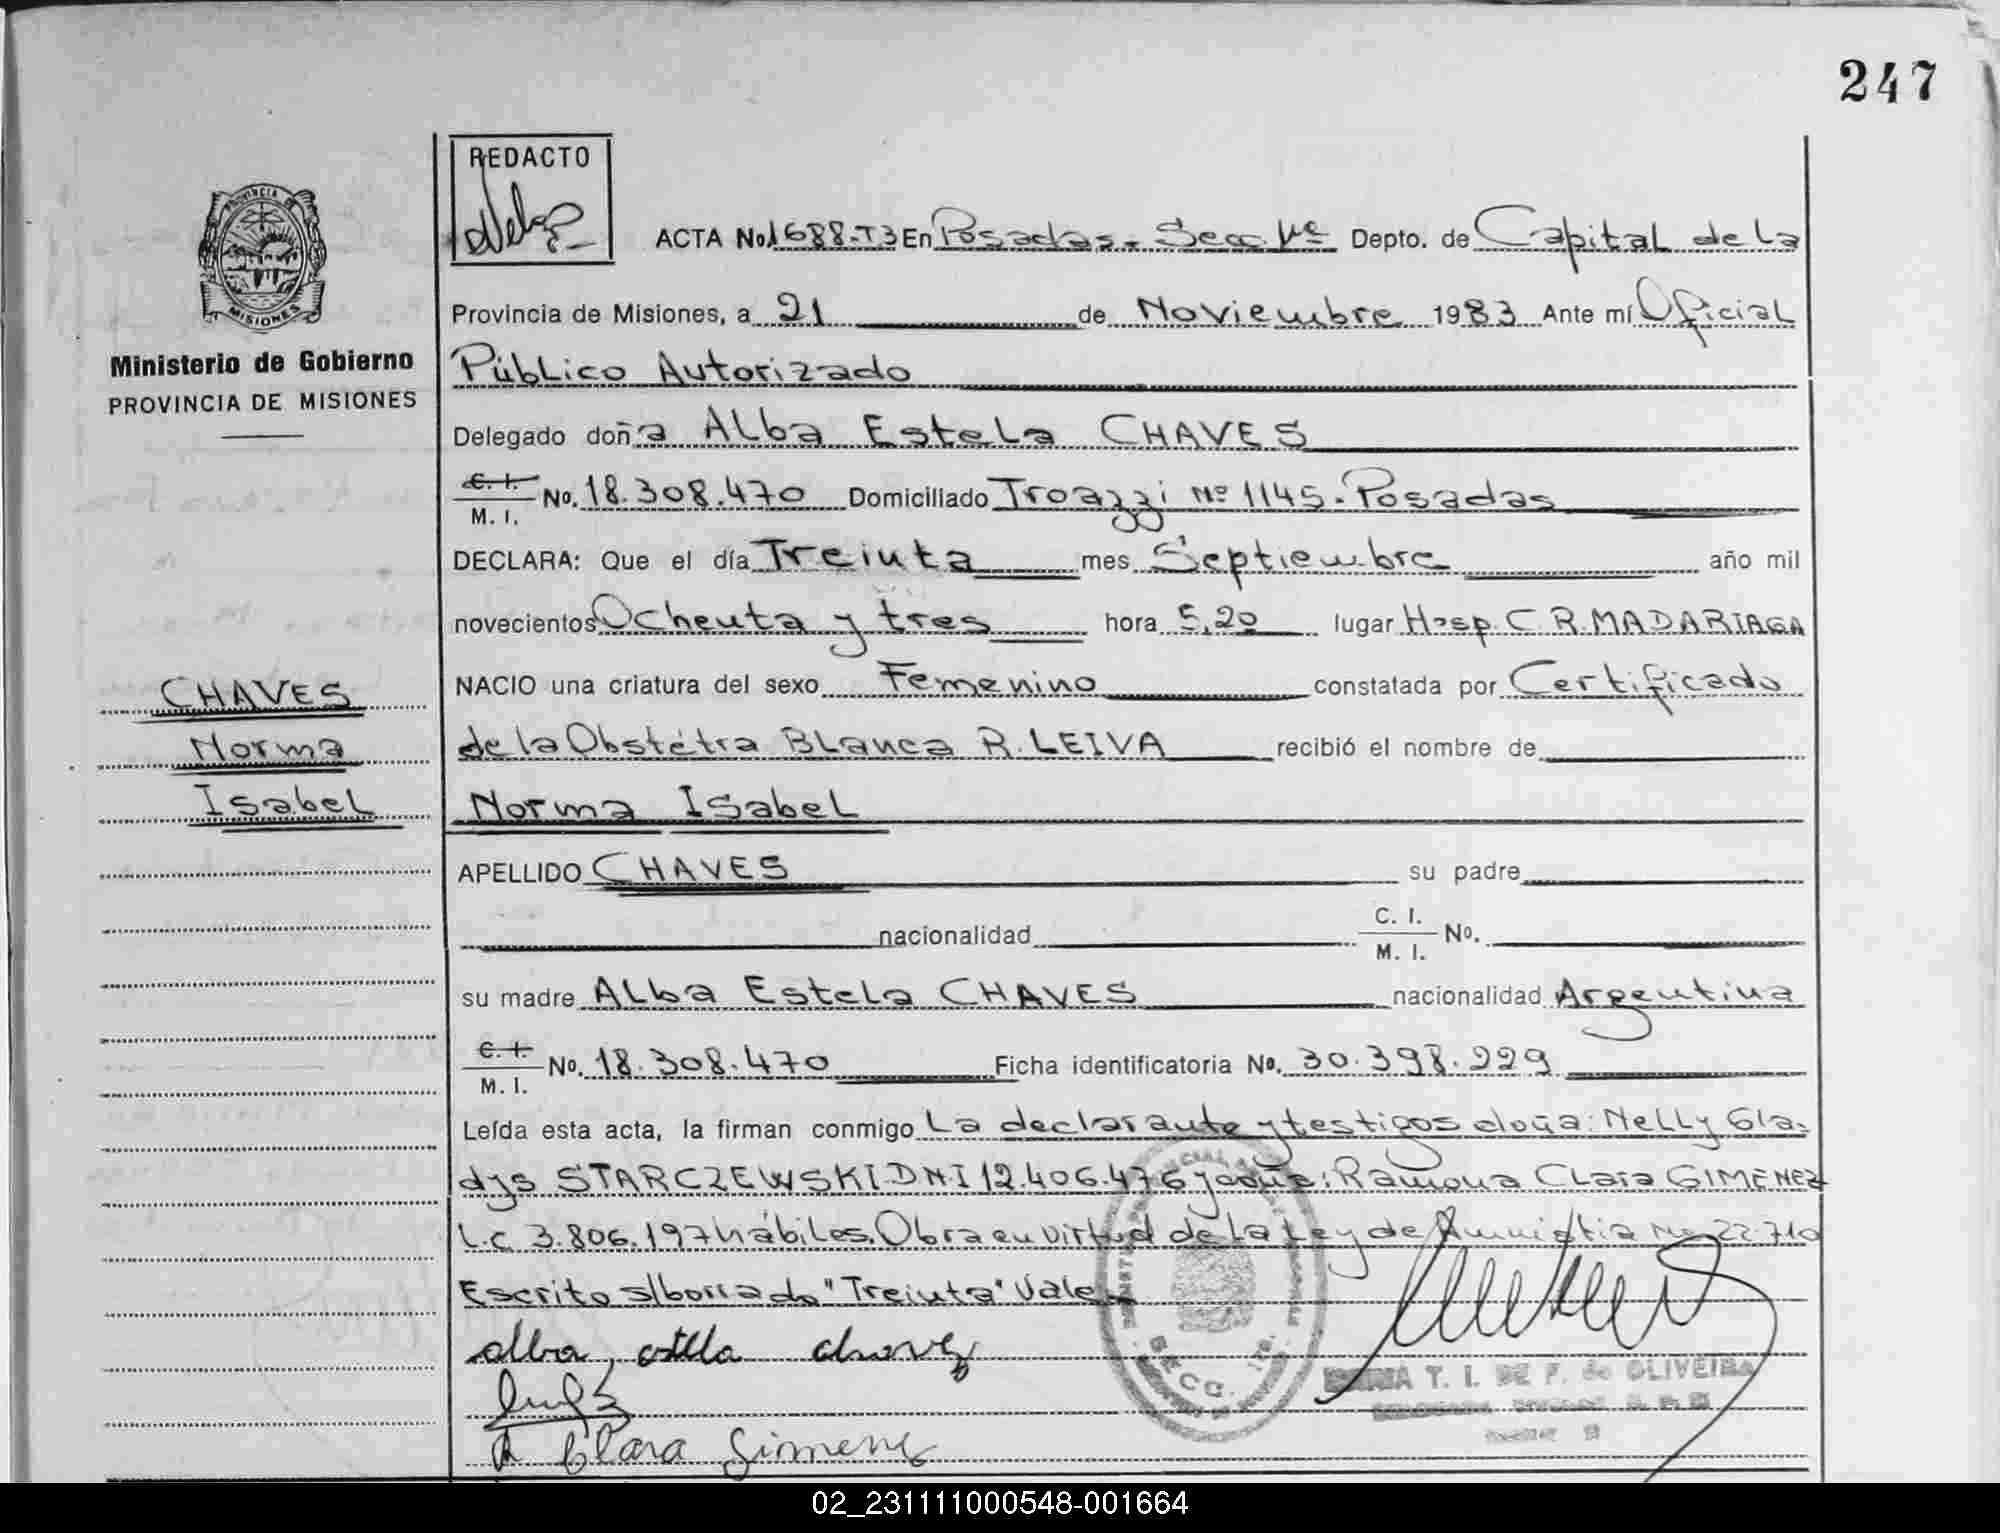 247
REDACTO
ACTA No. 1688-T3 En Posadas - Secc. 1ra Depto. de Capital de la
Provincia de Misiones, a 21 de Noviembre 1983 Ante mí Oficial
Público Autorizado
Delegado doña Alba Estela CHAVES
C. I. / M. I. No. 18.308.470 Domiciliado Troazzi Nº 1145 - Posadas
DECLARA: Que el día Treinta mes Septiembre año mil
novecientos Ochenta y tres hora 5,20 lugar Hosp. C. R. MADARIAGA
NACIO una criatura del sexo Femenino constatada por Certificado
de la Obstétra Blanca R. LEIVA recibió el nombre de
Norma Isabel
APELLIDO CHAVES su padre
nacionalidad C. I. / M. I. No.
su madre Alba Estela CHAVES nacionalidad Argentina
C. I. / M. I. No. 18.308.470 Ficha identificatoria No. 30.398.229
Leída esta acta, la firman conmigo La declarante y testigos doña: Nelly Gla-
dys STARCZEWSKI DNI 12.406.476 y doña: Ramona Clara GIMENEZ
L.C. 3.806.197 hábiles. Obra en virtud de la Ley de Amnistia Nº 22.710
Escrito s/borrado "Treinta" Vale
alba estella chavez
R Clara Gimenez
PROVINCIA DE
MISIONES
Ministerio de Gobierno
PROVINCIA DE MISIONES
CHAVES
Norma
Isabel
SECC. 1ra.
T. I. DE F. de OLIVEIRA
02_231111000548-001664